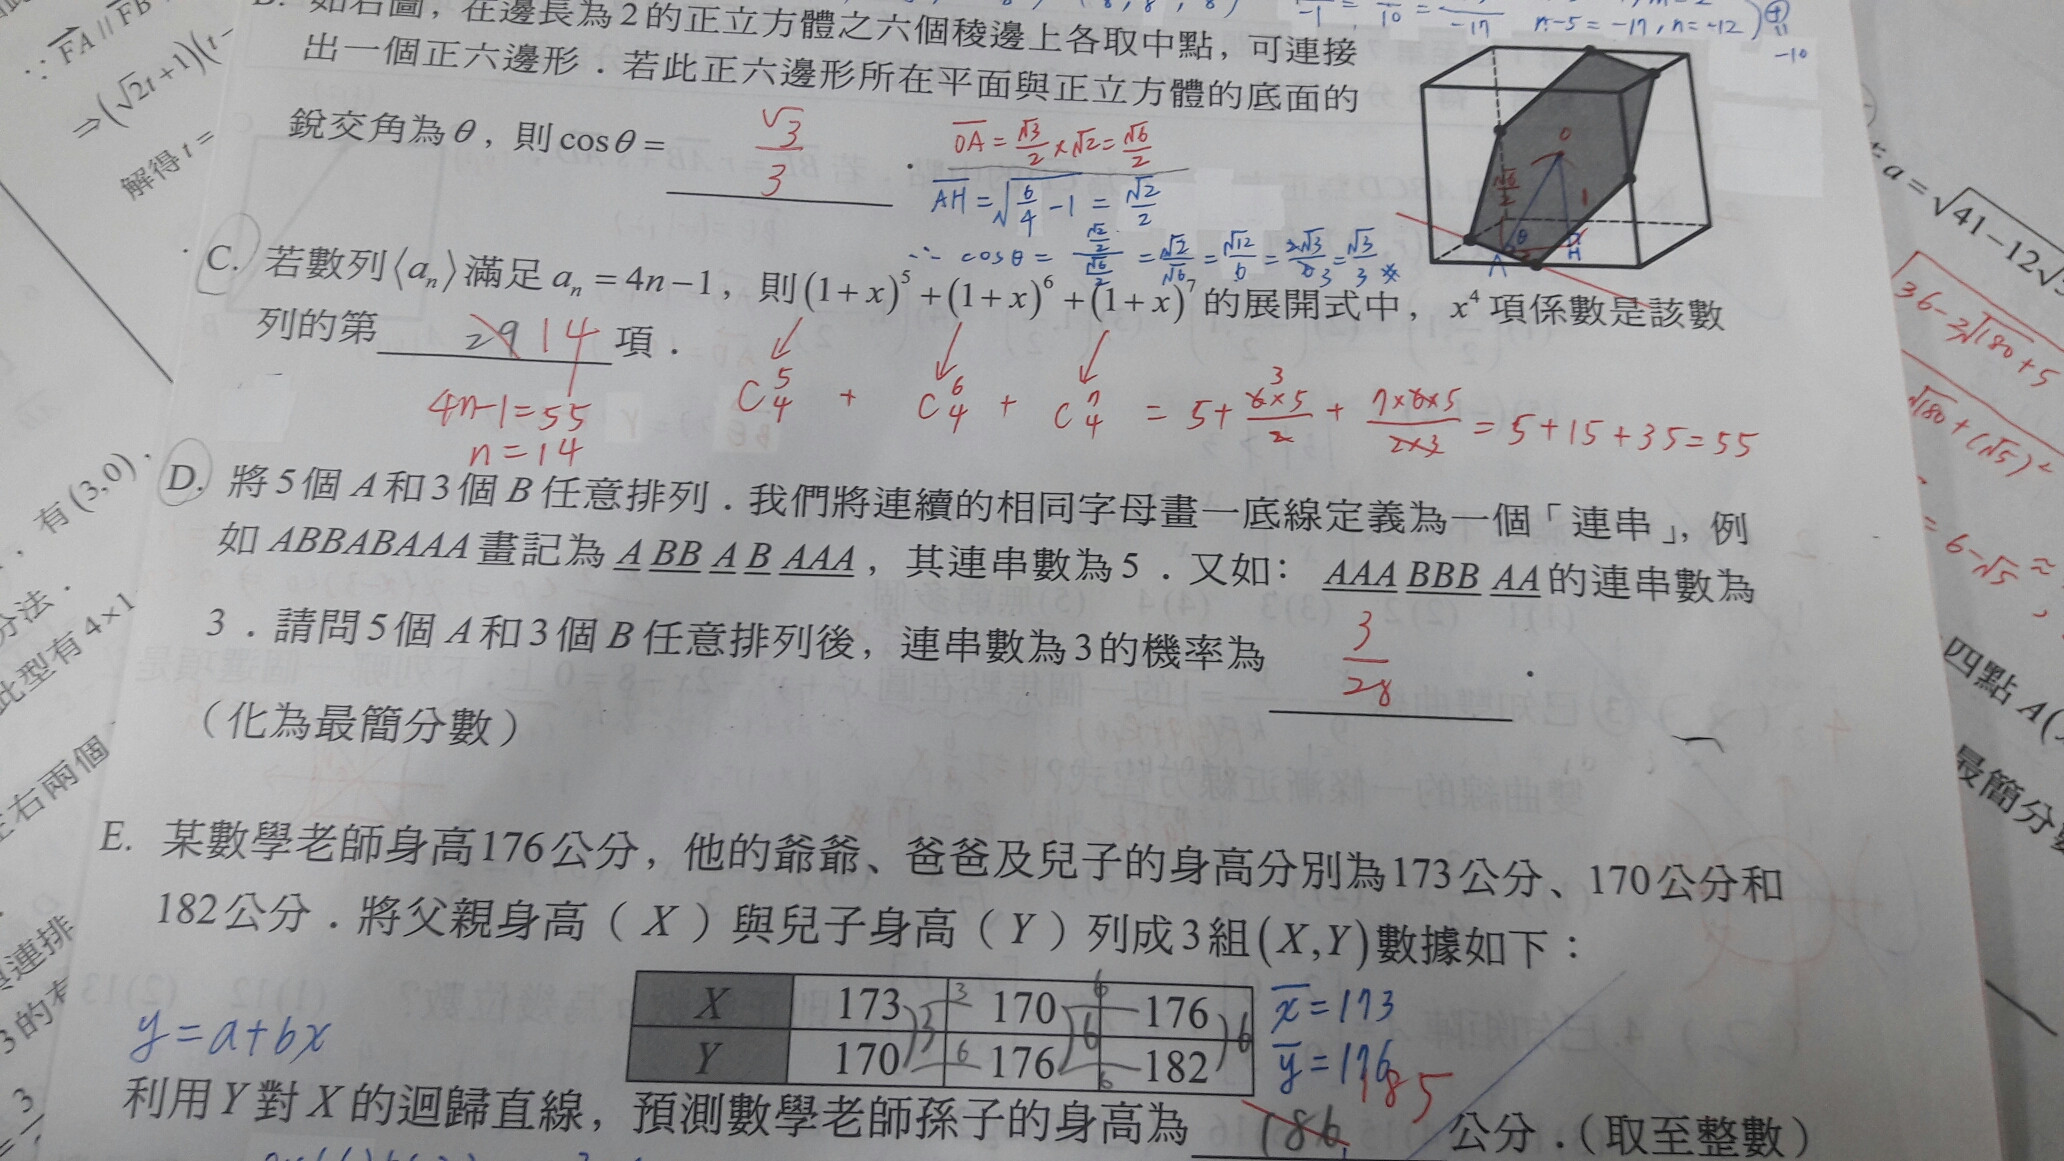 ∵ FA // FB
⇒(√2t+1)(t-
解得 t =
B. 如右圖，在邊長為2的正立方體之六個稜邊上各取中點，可連接
出一個正六邊形．若此正六邊形所在平面與正立方體的底面的
銳交角為θ，則cosθ= √3/3 ．
OA = √3/2 × √2 = √6/2
AH = √(6/4 - 1) = √2/2
∴ cosθ = (√2/2)/(√6/2) = √2/√6 = √12/6 = 2√3/6 = √3/3 ※
n-5 = -17, n = -12
-10
O
√6/2
1
θ
A
H
C. 若數列⟨aₙ⟩滿足 aₙ = 4n−1，則(1+x)⁵+(1+x)⁶+(1+x)⁷的展開式中，x⁴項係數是該數
列的第 29 14 項．
4n-1=55
n=14
C⁵₄ + C⁶₄ + C⁷₄ = 5 + 6×5/2 + 7×6×5/2×3 = 5+15+35=55
D. 將5個A和3個B任意排列．我們將連續的相同字母畫一底線定義為一個「連串」，例
如ABBABAAA畫記為A BB A B AAA，其連串數為5．又如：AAA BBB AA的連串數為
3．請問5個A和3個B任意排列後，連串數為3的機率為 3/28 ．
（化為最簡分數）
E. 某數學老師身高176公分，他的爺爺、爸爸及兒子的身高分別為173公分、170公分和
182公分．將父親身高（X）與兒子身高（Y）列成3組(X,Y)數據如下：
X 173 170 176
Y 170 176 182
3 3 6 6 6 6 6
x̄ = 173
ȳ = 176
y = a+bx
利用Y對X的迴歸直線，預測數學老師孫子的身高為 186 185 公分．（取至整數）
，有(3,0)，
分法．
此型有4×1
左右兩個
與連排
3的有
a = √41−12√5
36-3√180+5
√180+(√5)²
= 6-√5 ≈
四點A(
最簡分數